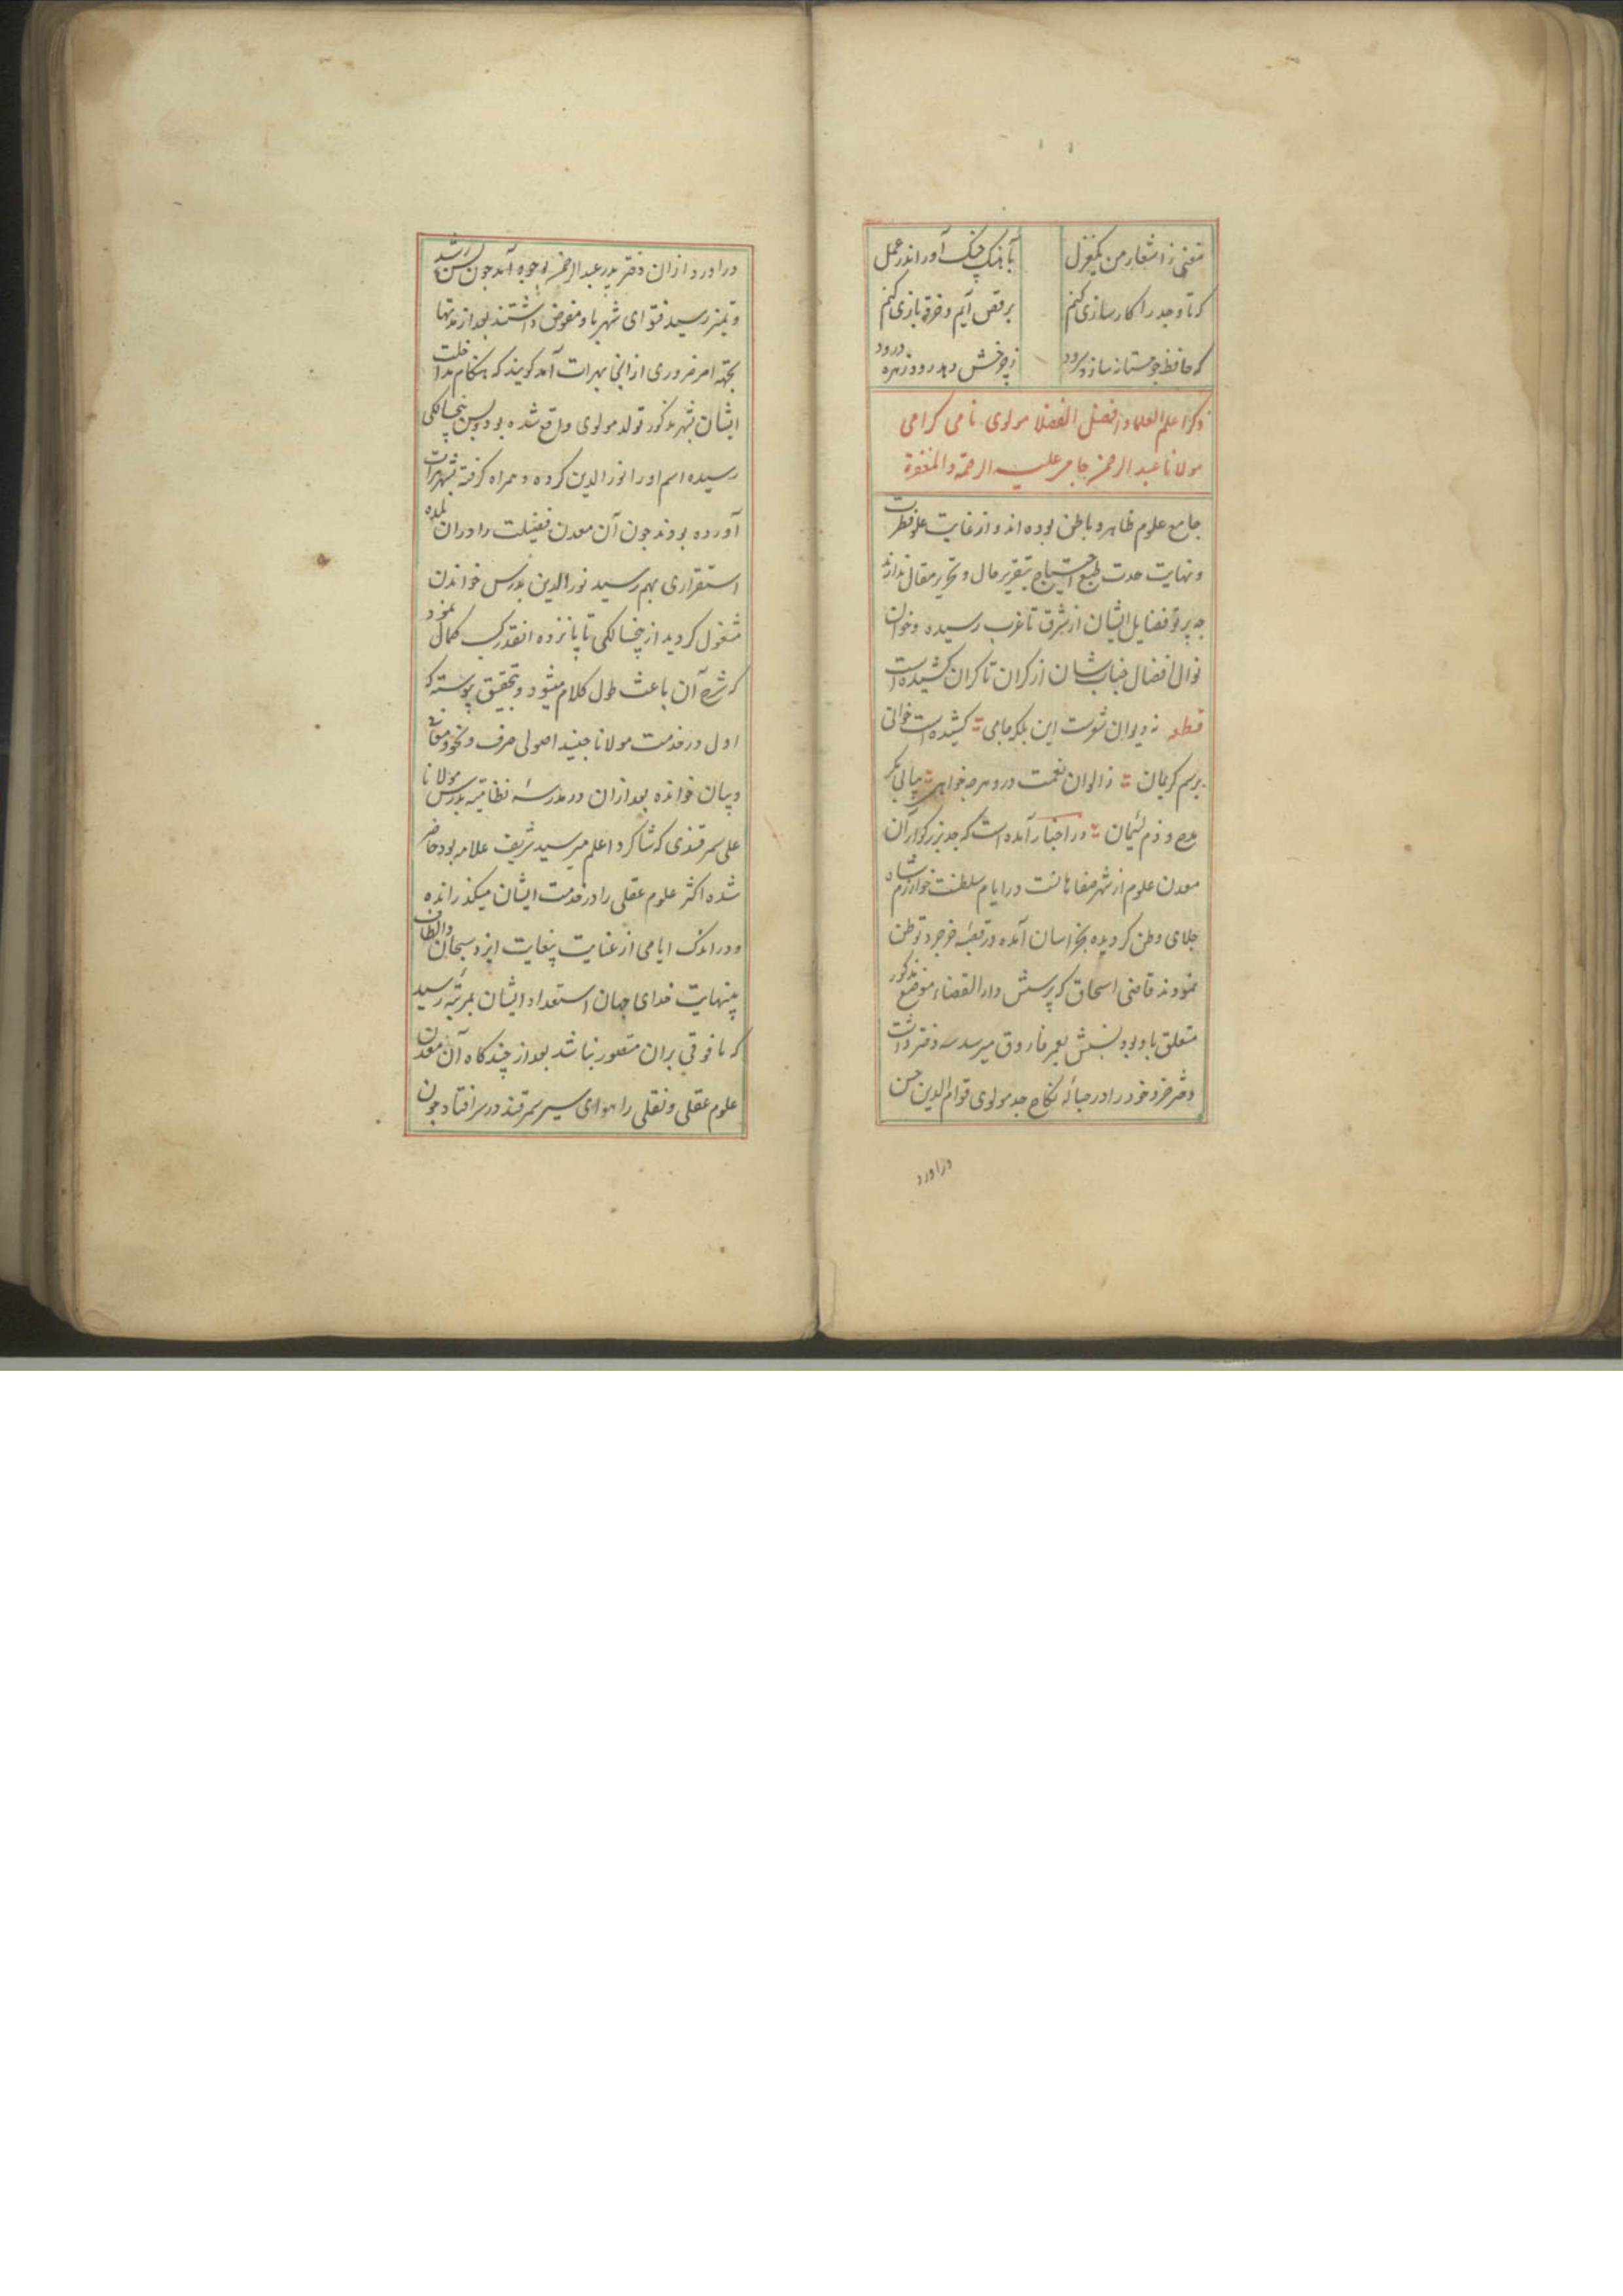 مغنی ز اشعار من یکغزل
بآهنک چنک آور اندر عمل
که تا وجد را کارسازی کنم
برقص آیم و خرقه بازی کنم
که حافظ چو مستانه سازد سرود
ز چرخش دهد رود زهره درود
ذکر اعلم العلما و افضل الفضلا مولوی نامی کرامی
مولانا عبد الرحمن جامی علیه الرحمة و المغفرة
جامع علوم ظاهر و باطن بوده اند و از غایت علو فطرت
و نهایت حدت طبع احتیاج بتقریر حال و تحریر مقال ندارند
چه پرتو فضایل ایشان از شرق تا غرب رسیده و خوان
نوال افضال جناب شان از کران تا کران کشیده است
قطعه ز دیوان شعرست این بلکه جامی کشیده است خوانی
برسم کریمان ز الوان نعمت درو هر چه خواهی بیابی مکر
مدح و ذم لئیمان در اخبار آمده است که جد بزرکوار آن
معدن علوم از شهر صفاهانست در ایام سلطنت خوارزم شاه
جلای وطن کردیده بخراسان آمده در قصبه خرجرد توطن
نمودند قاضی اسحاق که پرسش دار القضاء موضع مذکور
متعلق باو بود نسبش بعمر فاروق میرسد سه دختر داشت
دختر خرد خود را در حباله نکاح جد مولوی قوام الدین حسن
دراورد
دراورد از ان دختر پدر عبد الرحمن بوجود آمد چون بسن رشد
و تمیز رسید فتوای شهر باو مفوض داشتند بعد از مدتها
بجهته امر ضروری از انجا بهرات آمد کویند که هنکام مداخلت
ایشان بشهر مذکور تولد مولوی واقع شده بود و بسن پنجسالکی
رسیده اسم او را نور الدین کرده و همراه کرفته بشهر هرات
آورده بودند چون آن معدن فضیلت را دران بلده
استقراری بهم رسید نور الدین بدرس خواندن
مشغول کردید از پنجسالکی تا پانزده انقدر کسب کمال نمود
که شرح آن باعث طول کلام میشود و بتحقیق پیوسته که
اول در خدمت مولانا جنید اصولی صرف و نحو و معانی
و بیان خوانده بعد ازان در مدرسه نظامیه بدرس مولانا
علی سمرقندی که شاکرد اعلم میر سید شریف علامه بود حاضر
شده اکثر علوم عقلی را در خدمت ایشان میکذرانده
و در اندک ایامی از عنایت بیغایت ایزد سبحان و الطاف
بینهایت خدای جهان استعداد ایشان بمرتبه رسید
که مافوقی بران متصور نباشد بعد از چند کاه آن معدن
علوم عقلی و نقلی را هوای سیر سمرقند در سر افتاد چون